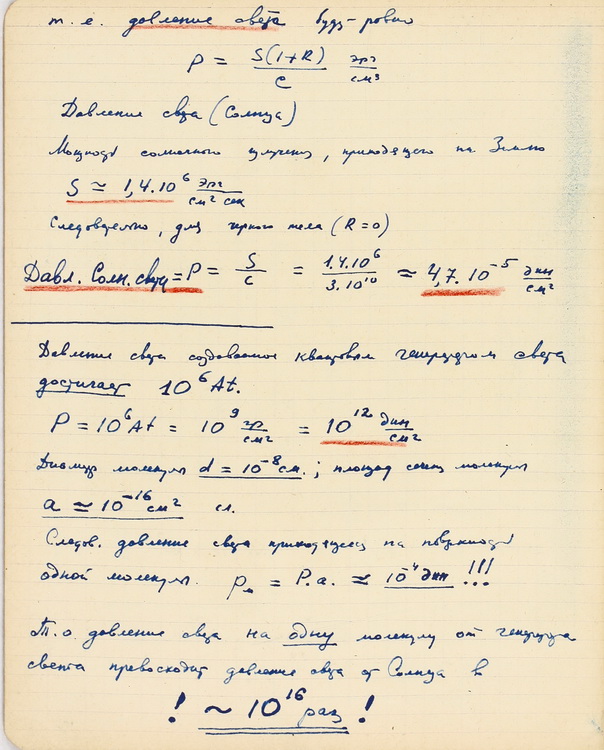 т. е. давление света буде равно
P = S(1+R)/c эрг/см³
Давление света (Солнца)
Мощность солнечного излучения, приходящего на Землю
S ≃ 1,4.10⁶ эрг/см² сек
Следовательно, для чёрного тела (R=0)
Давл. Солн. света = P = S/c = 1.4.10⁶/3.10¹⁰ ≃ 4,7.10⁻⁵ дин/см²
Давление света создаваемое квантовым генератором света
достигает 10⁶ At.
P = 10⁶ At = 10⁹ гр/см² = 10¹² дин/см²
Диаметр молекулы d = 10⁻⁸ см.; площадь сечен молекулы
a ≃ 10⁻¹⁶ см²
Следов. давление света приходящееся на поверхность
одной молекулы. pₘ = P.a. ≃ 10⁻⁴ дин !!!
Т. о. давление света на одну молекулу от генератора
света превосходит давление света от Солнца в
! ~ 10¹⁶ раз !